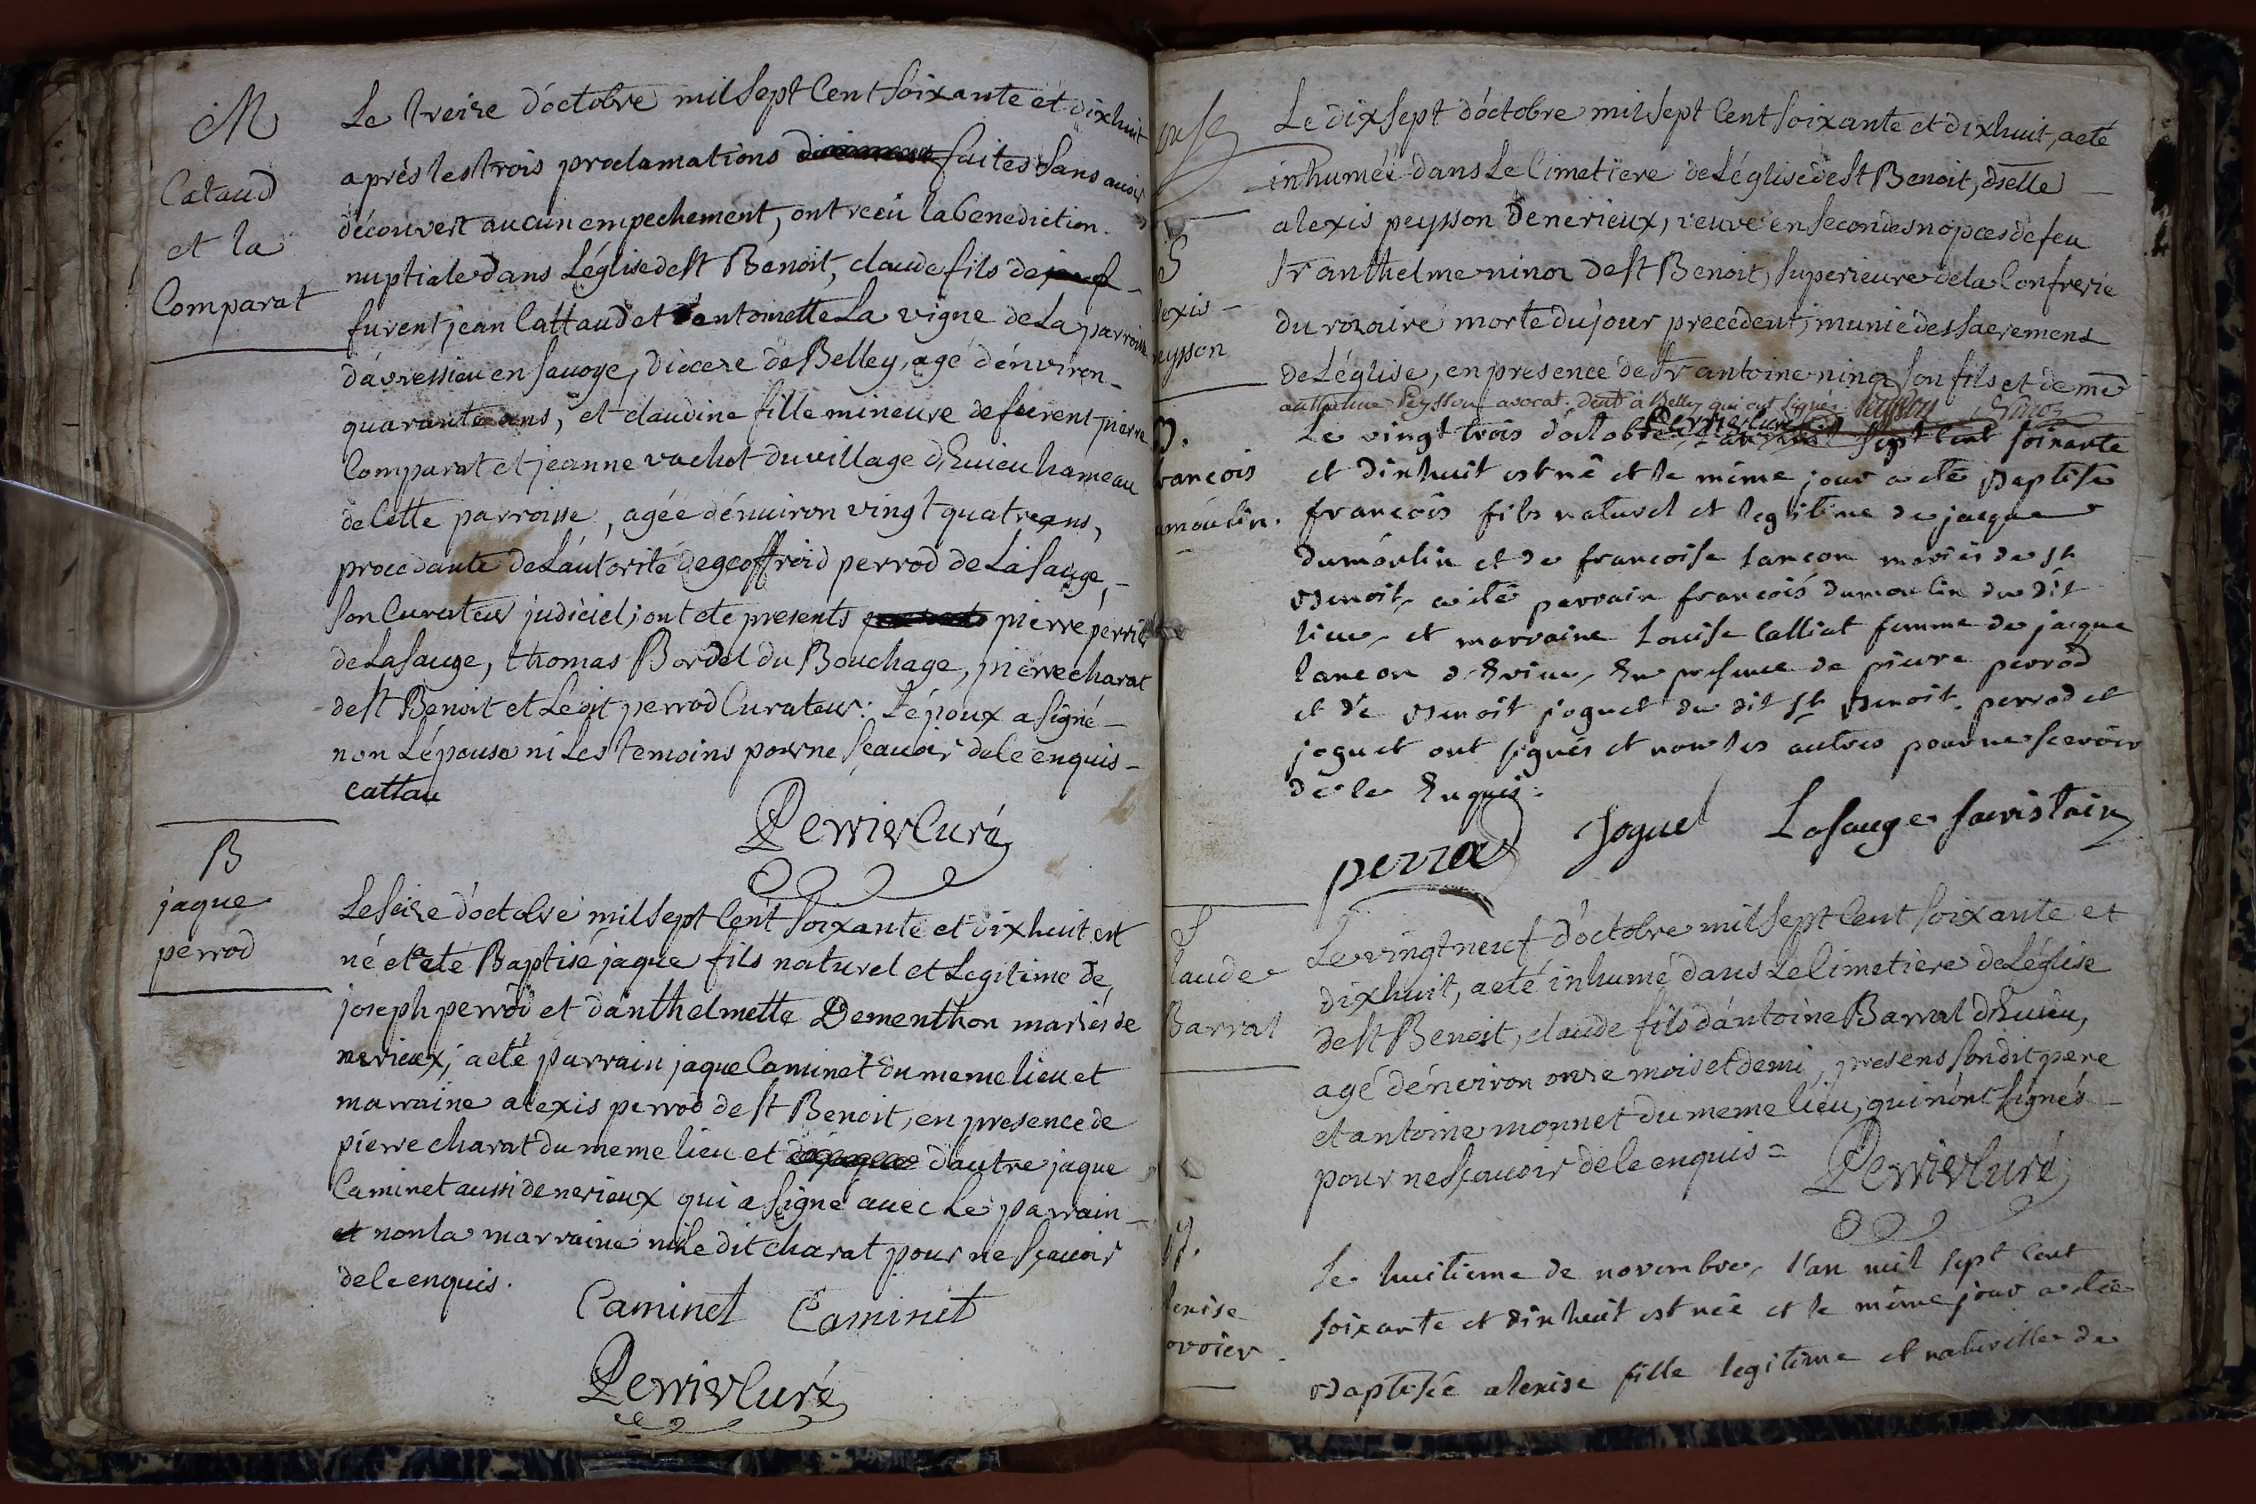 M
Cataud
et la
Comparat
Le treize d'octobre mil sept Cent soixante et dixhuit
après les trois proclamations faites sans avoir
découvert aucun empechement, ont reçû la benediction
nuptiale dans L'église de st Benoit, claude fils de
furent jean Cattaud et d'antoinette La vigne de La parroisse
d'avressieu en savoye, diocèze de Belley, agé d'environ
quarante ans, et claudine fille mineure de furent pierre
Comparat et jeanne vachot du village d'Evieu hameau
de Cette parroisse, agée d'environ vingt quatre ans,
procedante de L'autorité de geoffroid perrod de La sauge,
son Curateur judiciel; ont eté presents pierre perrit
de La sauge, thomas Bordel du Bouchage, pierre charat
de st Benoit et Le dit perrod Curateur: L'époux a signé
non L'épouse ni Les temoins pour ne sçavoir de Ce enquis
cattau
Perrier Curé
B
jaque
perrod
Le seize d'octobre mil sept Cent soixante et dixhuit est
né et eté Baptisé jaque fils naturel et Legitime de
joseph perrod et d'anthelmette Dementhon mariés de
nerieux; a eté parrain jaque Caminet du meme lieu et
marraine alexis perrod de st Benoit, en presence de
pierre charat du meme lieu et d'autre jaque
Caminet aussi de nerieux qui a signé avec Le parrain
et non la marraine ni Le dit charat pour ne sçavoir
de Ce enquis.
Caminet Caminet
Perrier Curé
S
lexis
eysson
Le dix sept d'octobre mil sept Cent soixante et dixhuit, a eté
inhumée dans Le Cimetiere de L'église de st Benoit, dselle
alexis peysson de nerieux, veuve en secondes nopces de feu
sr anthelme ninoz de st Benoit, superieure de la Confrerie
du rozaire morte du jour precedent, munie des sacremens
de L'église, en presence de sr antoine ninoz son fils et de me
anthelme Peysson avocat, demt à Belley qui ont signés Peysson Ninoz
Perrier Curé
B.
rancois
moulin.
Le vingt trois d'octobre, l'an mil sept cent soixante
et dixhuit est né et le même jour a eté Baptisé
francois fils naturel et legitime de jacque
dumoulin et de francoise lançon mariés de st
Benoit, a été parrain francois dumoulin du dit
lieu, et marraine Louise Calliat femme de jacque
lancon d'Evieu, En presence de pierre perrod
et de Benoit joguet du dit st Benoit. perrod et
joguet ont signés et non les autres pour ne scavoir
de ce Enquis.
perrod Joguet Lasauge sacristain
S
laude
Barrat
Le vingt neuf d'octobre mil sept Cent soixante et
dixhuit, a eté inhumé dans Le Cimetiere de L'église
de st Benoit, claude fils d'antoine Barrat d'Evieu,
agé d'environ onze mois et demi, presens son dit pere
et antoine monnet du meme lieu, qui n'ont signés
pour ne sçavoir de Ce enquis =
Perrier Curé
B.
lexise
ovoier
Le huitieme de novembre, l'an mil sept cent
soixante et dixhuit est née et le même jour a eté
Baptisée alexise fille legitime et naturelle de